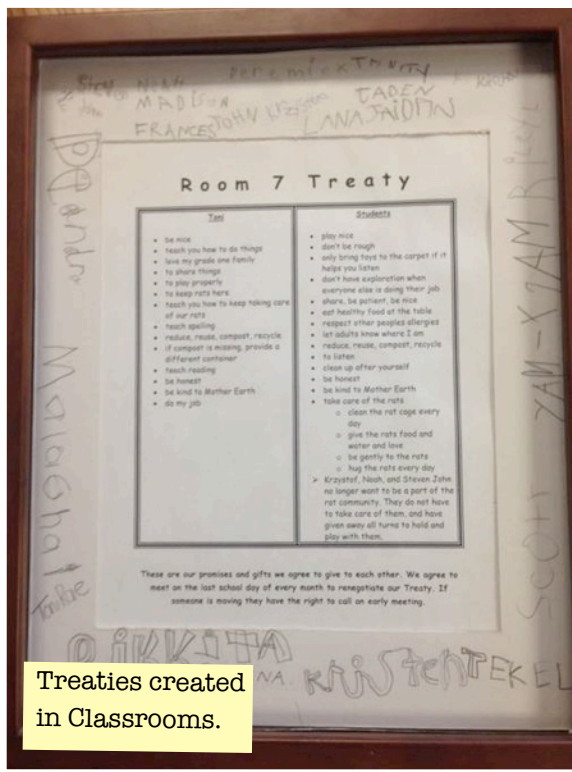 NOAH
TRINITY
MADISON
JADEN
FRANCES JOHN
LANA JAIDIN
Room 7 Treaty
Toni
• be nice
• teach you how to do things
• love my grade one family
• to share things
• to play properly
• to keep rats here
• teach you how to keep taking care
of our rats
• teach spelling
• reduce, reuse, compost, recycle
• if compost is missing, provide a
different container
• teach reading
• be honest
• be kind to Mother Earth
• do my job
Students
• play nice
• don't be rough
• only bring toys to the carpet if it
helps you listen
• don't have exploration when
everyone else is doing their job
• share, be patient, be nice
• eat healthy food at the table
• respect other peoples allergies
• let adults know where I am
• reduce, reuse, compost, recycle
• to listen
• clean up after yourself
• be honest
• be kind to Mother Earth
• take care of the rats
o clean the rat cage every
day
o give the rats food and
water and love
o be gently to the rats
o hug the rats every day
➤ Krzystof, Noah, and Steven John
no longer want to be a part of the
rat community. They do not have
to take care of them, and have
given away all turns to hold and
play with them.
These are our promises and gifts we agree to give to each other. We agree to
meet on the last school day of every month to renegotiate our Treaty. If
someone is moving they have the right to call an early meeting.
Malachai
SCOTT
KRISTEN TEKEL
Treaties created
in Classrooms.